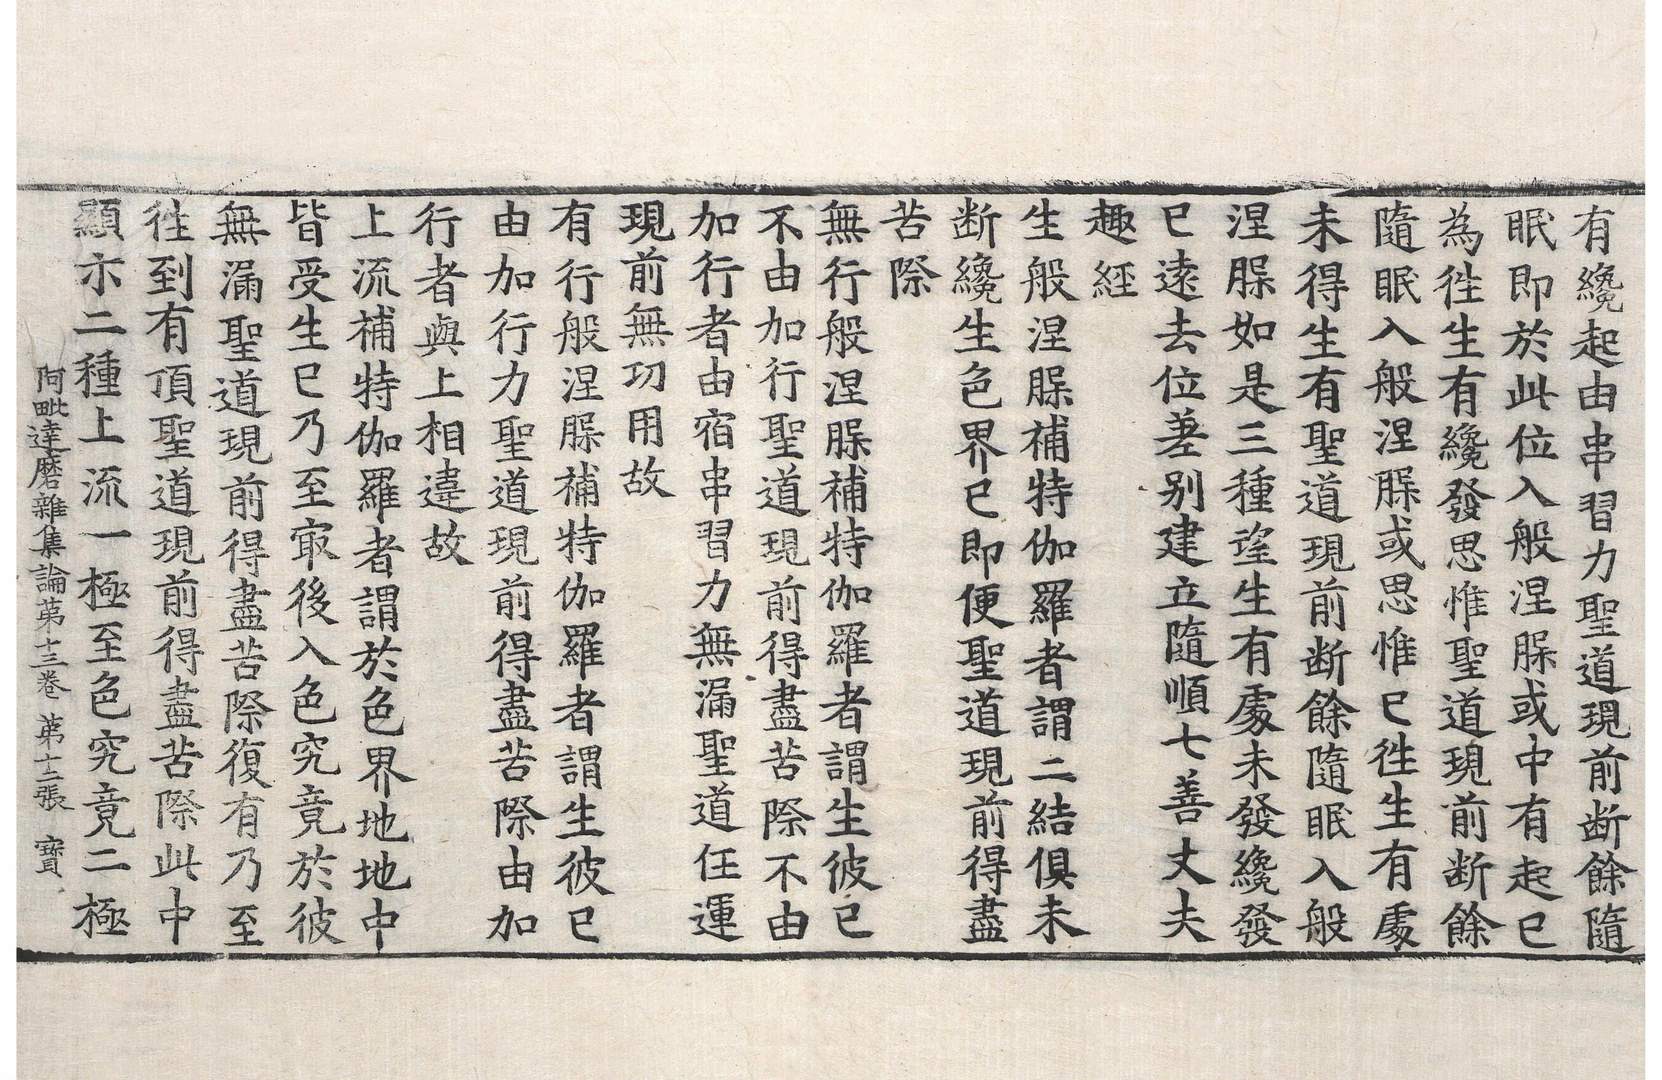 有纔起由串習力聖道現前断餘隨
眠即於此位入般涅槃或中有起已
為徃生有纔發思惟聖道現前断餘
隨眠入般涅槃或思惟已徃生有處
未得生有聖道現前断餘隨眠入般
涅槃如是三種望生有處未發纔發
已遠去位差别建立隨順七善丈夫
趣経
生般涅槃補特伽羅者謂二結俱未
断纔生色界已即便聖道現前得盡
苦際
無行般涅槃補特伽羅者謂生彼已
不由加行聖道現前得盡苦際不由
加行者由宿串習力無漏聖道任運
現前無功用故
有行般涅槃補特伽羅者謂生彼已
由加行力聖道現前得盡苦際由加
行者與上相違故
上流補特伽羅者謂於色界地地中
皆受生已乃至㝡後入色究竟於彼
無漏聖道現前得盡苦際復有乃至
徃到有頂聖道現前得盡苦際此中
顯示二種上流一極至色究竟二極
阿毗達磨雜集論苐十三卷 苐十二張 寳